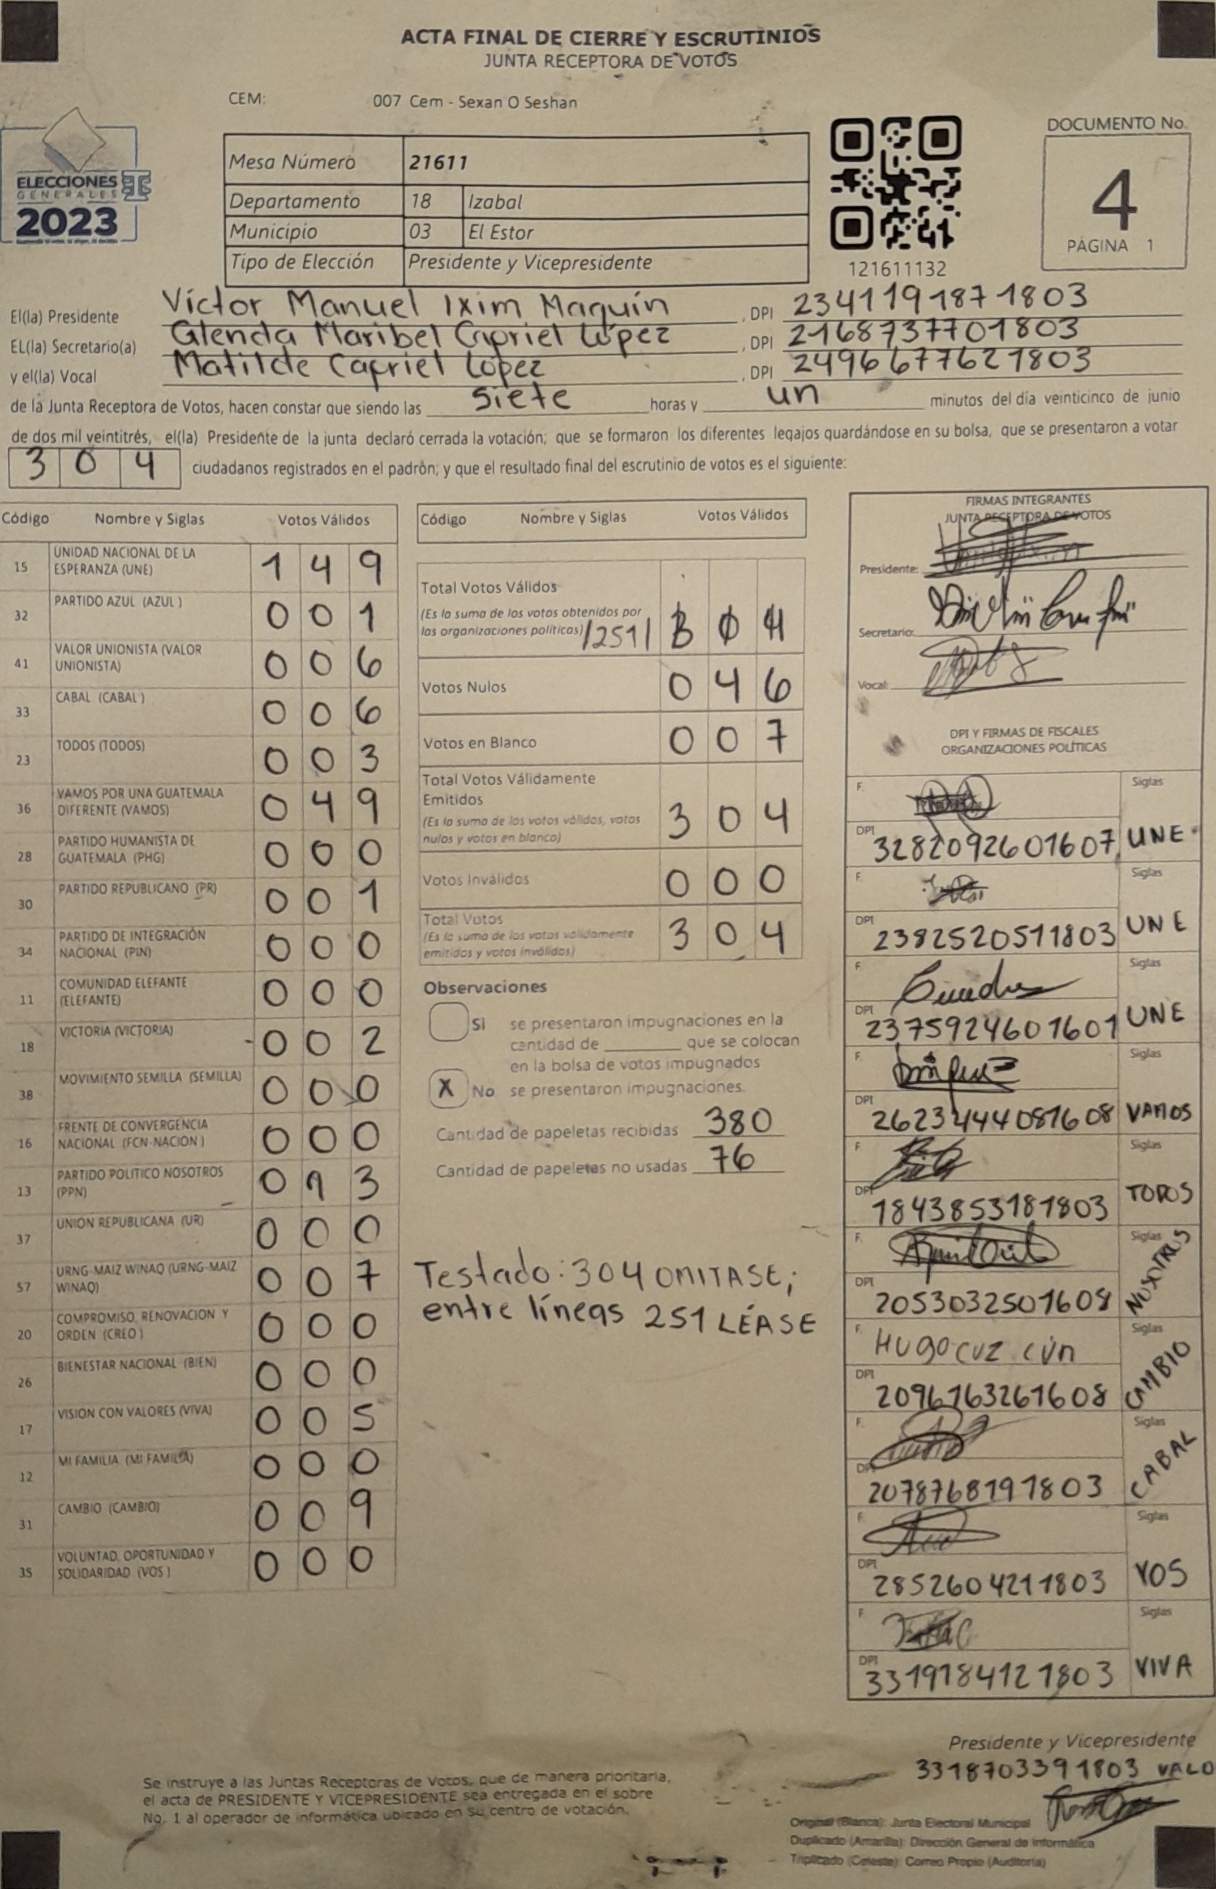 ACTA FINAL DE CIERRE Y ESCRUTINIOS
JUNTA RECEPTORA DE VOTOS
CEM: 007 Cem - Sexan O Seshan
ELECCIONES
GENERALES
2023
Mesa Número 21611
Departamento 18 Izabal
Municipio 03 El Estor
Tipo de Elección Presidente y Vicepresidente
121611132
DOCUMENTO No.
4
PÁGINA 1
El(la) Presidente Víctor Manuel Ixim Maquín, DPI 2341191871803
EL(la) Secretario(a) Glenda Maribel Capriel López, DPI 2168737701803
y el(la) Vocal Matilde Capriel López, DPI 2496677621803
de la Junta Receptora de Votos, hacen constar que siendo las siete horas y un minutos del día veinticinco de junio
de dos mil veintitrés, el(la) Presidente de la junta declaró cerrada la votación; que se formaron los diferentes legajos guardándose en su bolsa, que se presentaron a votar
304 ciudadanos registrados en el padrón; y que el resultado final del escrutinio de votos es el siguiente:
Código Nombre y Siglas Votos Válidos
15 UNIDAD NACIONAL DE LA ESPERANZA (UNE) 149
32 PARTIDO AZUL (AZUL ) 001
41 VALOR UNIONISTA (VALOR UNIONISTA) 006
33 CABAL (CABAL ) 006
23 TODOS (TODOS) 003
36 VAMOS POR UNA GUATEMALA DIFERENTE (VAMOS) 049
28 PARTIDO HUMANISTA DE GUATEMALA (PHG) 000
30 PARTIDO REPUBLICANO (PR) 001
34 PARTIDO DE INTEGRACIÓN NACIONAL (PIN) 000
11 COMUNIDAD ELEFANTE (ELEFANTE) 000
18 VICTORIA (VICTORIA) 002
38 MOVIMIENTO SEMILLA (SEMILLA) 000
16 FRENTE DE CONVERGENCIA NACIONAL (FCN-NACION ) 000
13 PARTIDO POLITICO NOSOTROS (PPN) 013
37 UNION REPUBLICANA (UR) 000
57 URNG-MAIZ WINAQ (URNG-MAIZ WINAQ) 007
20 COMPROMISO, RENOVACION Y ORDEN (CREO ) 000
26 BIENESTAR NACIONAL (BIEN) 000
17 VISION CON VALORES (VIVA) 005
12 MI FAMILIA (MI FAMILIA) 000
31 CAMBIO (CAMBIO) 009
35 VOLUNTAD, OPORTUNIDAD Y SOLIDARIDAD (VOS ) 000
Código Nombre y Siglas Votos Válidos
Total Votos Válidos
(Es la suma de los votos obtenidos por
las organizaciones políticas) /251/ 304
Votos Nulos 046
Votos en Blanco 007
Total Votos Válidamente
Emitidos
(Es la suma de los votos válidos, votos
nulos y votos en blanco) 304
Votos Inválidos 000
Total Votos
(Es la suma de los votos válidamente
emitidos y votos inválidos) 304
Observaciones
SI se presentaron impugnaciones en la
cantidad de ________ que se colocan
en la bolsa de votos impugnados
X No se presentaron impugnaciones.
Cantidad de papeletas recibidas 380
Cantidad de papeletas no usadas 76
Testado: 304 OMITASE;
entre líneas 251 LÉASE
FIRMAS INTEGRANTES
JUNTA RECEPTORA DE VOTOS
Presidente:
Secretario:
Vocal:
DPI Y FIRMAS DE FISCALES
ORGANIZACIONES POLÍTICAS
F. Siglas
DPI 3282092601607 UNE
F. Siglas
DPI 2382520511803 UNE
F. Siglas
DPI 2375924601601 UNE
F. Siglas
DPI VAMOS
F. Siglas
DPI 1843853181803 TODOS
F. Siglas
DPI 2053032501608 NOSOTROS
F. HUGO CUZ CUN Siglas
DPI 2096163261608 CAMBIO
F. Siglas
DPI 2078768191803 CABAL
F. Siglas
DPI 2852604211803 VOS
F. Siglas
DPI 3319184121803 VIVA
Presidente y Vicepresidente
3318703391803 VALO
Se instruye a las Juntas Receptoras de Votos, que de manera prioritaria,
el acta de PRESIDENTE Y VICEPRESIDENTE sea entregada en el sobre
No. 1 al operador de informática ubicado en su centro de votación.
Original (Blanca): Junta Electoral Municipal
Duplicado (Amarilla): Dirección General de Informática
Triplicado (Celeste): Correo Propio (Auditoría)